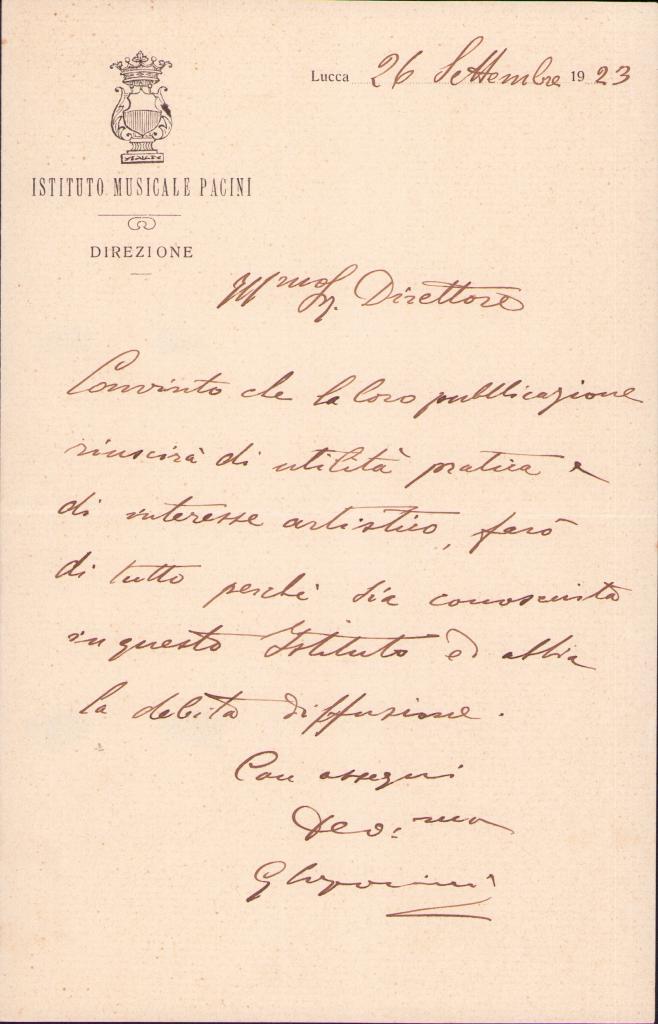 Lucca 26 Settembre 1923
ISTITUTO MUSICALE PACINI
DIREZIONE
Ill.mo Sg. Direttore
Convinto che la loro pubblicazione
riuscirà di utilità pratica e
di interesse artistico, farò
di tutto perchè sia conosciuta
in questo Istituto ed abbia
la debita diffusione.
Con ossequi
Dev.mo